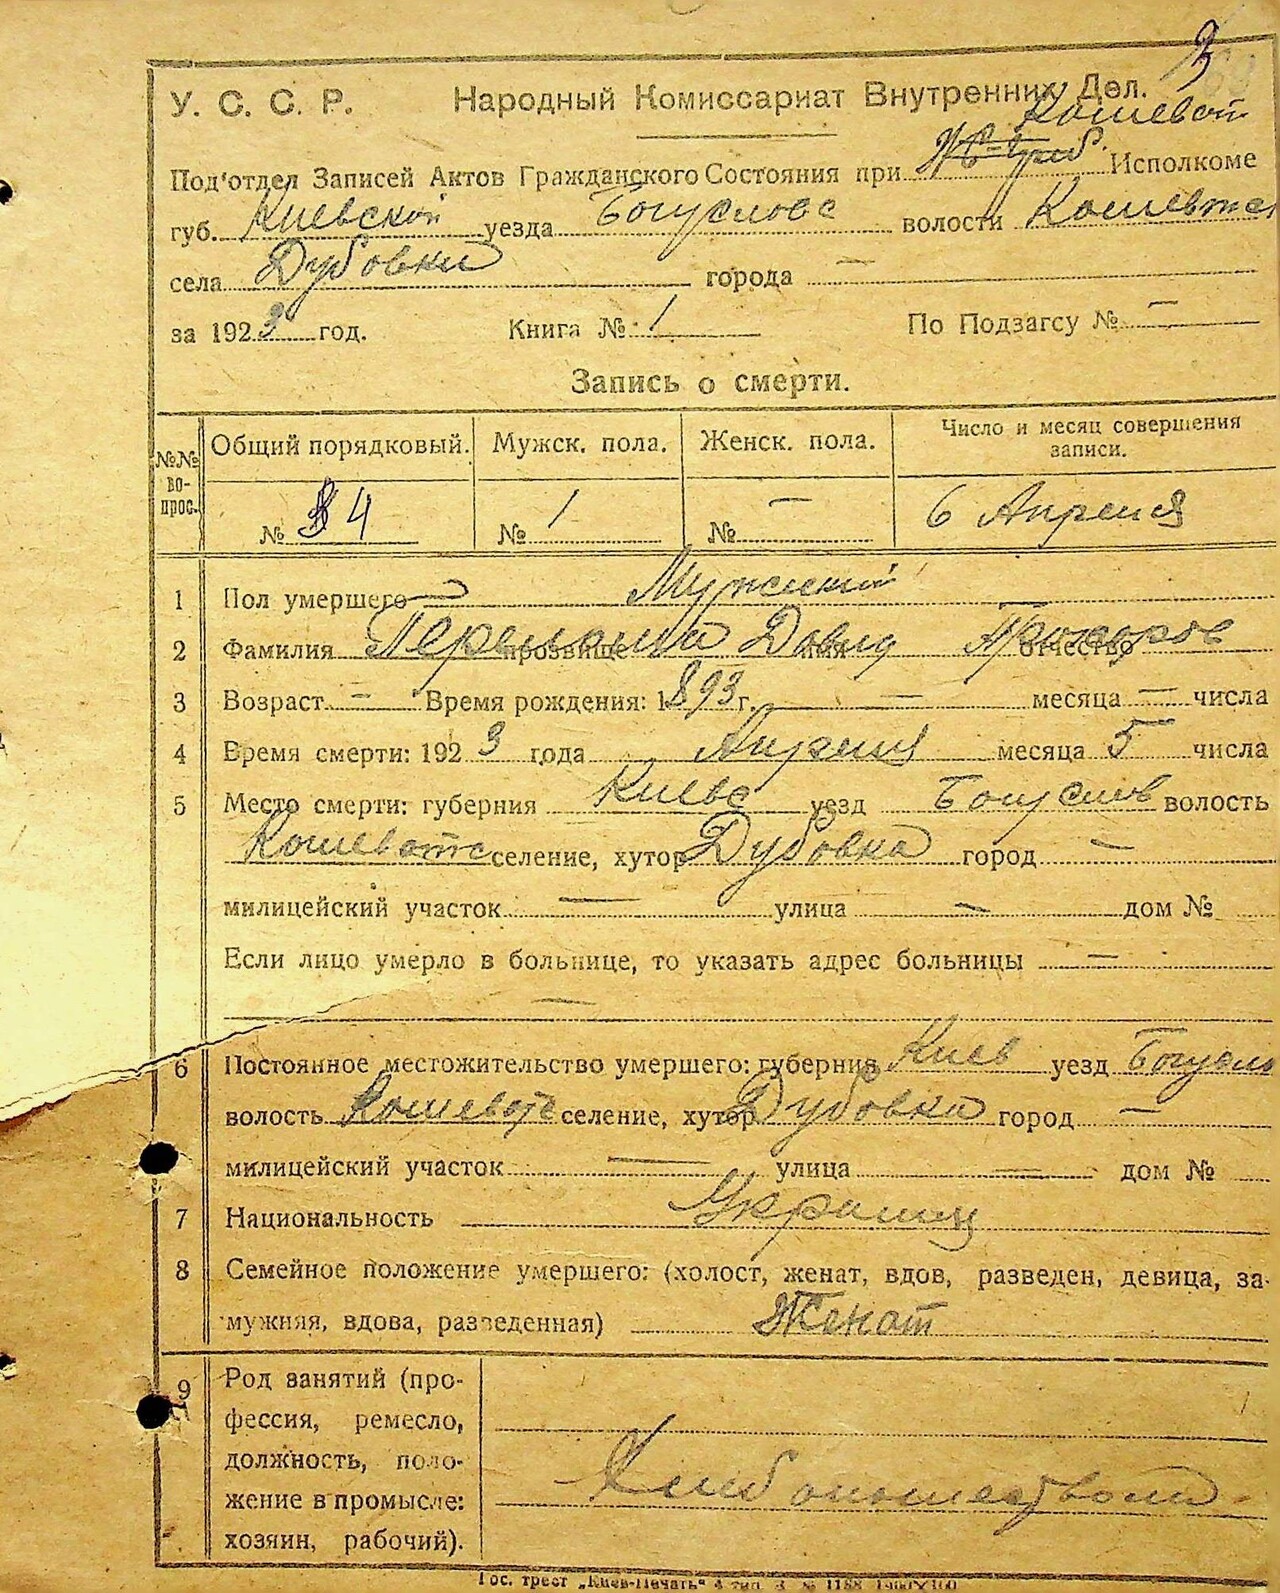 3
У. С. С. Р. Народный Комиссариат Внутренних Дел.
Кошеват
Под'отдел Записей Актов Гражданского Состояния при Исполкоме
губ. Киевской уезда Богуславс волости Кошеватск
села Дубовки города —
за 1923 год. Книга № 1 По Подзагсу № —
Запись о смерти.
№№ во- прос. Общий порядковый. Мужск. пола. Женск. пола. Число и месяц совершения записи.
№ 4 № 1 № — 6 Апреля
1 Пол умершего Мужский
2 Фамилия прозвище Давид имя отчество
3 Возраст — Время рождения: 1893 г. — месяца — числа
4 Время смерти: 1923 года Апреля месяца 5 числа
5 Место смерти: губерния Киевс уезд Богуслав волость
Кошеватс селение, хутор Дубовка город —
милицейский участок — улица — дом №
Если лицо умерло в больнице, то указать адрес больницы —
—
6 Постоянное местожительство умершего: губерния Киев уезд Богусла
волость Кошеватс селение, хутор Дубовка город —
милицейский участок — улица — дом №
7 Национальность Украинец
8 Семейное положение умершего: (холост, женат, вдов, разведен, девица, за-
мужняя, вдова, разведенная) Женат
9 Род занятий (про-
фессия, ремесло,
должность, поло-
жение в промысле:
хозяин, рабочий).
Хлебопашеством
Гос. трест „Киев-Печать" 4 тип. З. № 1188